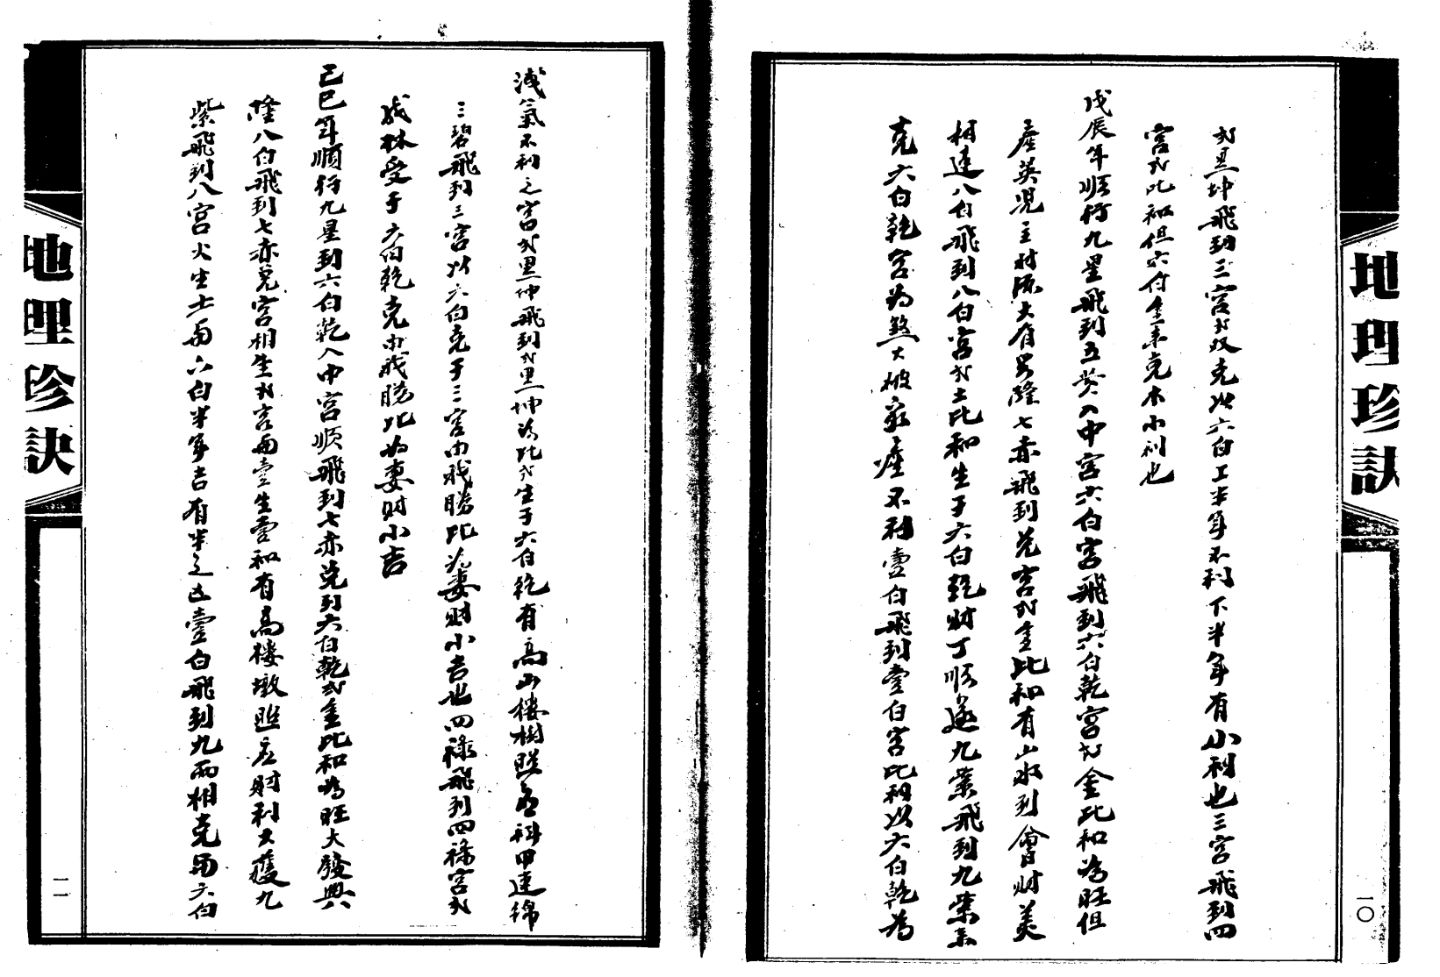 地理珍訣
一〇
黑坤飛到三宮 克 六白上半年不利下半年有小利也三宮飛到四
宮 比和但六付金來克木小利也
戊辰年順行九星飛到五黃入中宮六白宮飛到六白乾宮 金比和為旺但
產英児主財源大有 隆七赤飛到兌宮 金比和有山水到會財美
相連八白飛到八白宮 土比和生于六白乾財丁順遂九紫飛到九紫
克六白乾宮為煞大被家產不利壹白飛到壹白宮比和以六白乾為
洩氣不利之宮 黑坤飛到 黑坤 比 生于六白乾有高山樓樹照 科甲連錦
三碧飛到三宮以六白克于三宮由我勝比為妻財小吉也四祿飛到四祿宮
林受于六白乾克由我勝比為妻財小吉
己巳年順行九星到六白乾入中宮順飛到七赤兌到六白乾 金比和為旺大發興
隆八白飛到七赤兌宮相生 宮 壹生壹和有高樓墩照 財利大獲九
紫飛到八宮火生土 六白半年吉有半之凶壹白飛到九兩相克 六白
地理珍訣
一一